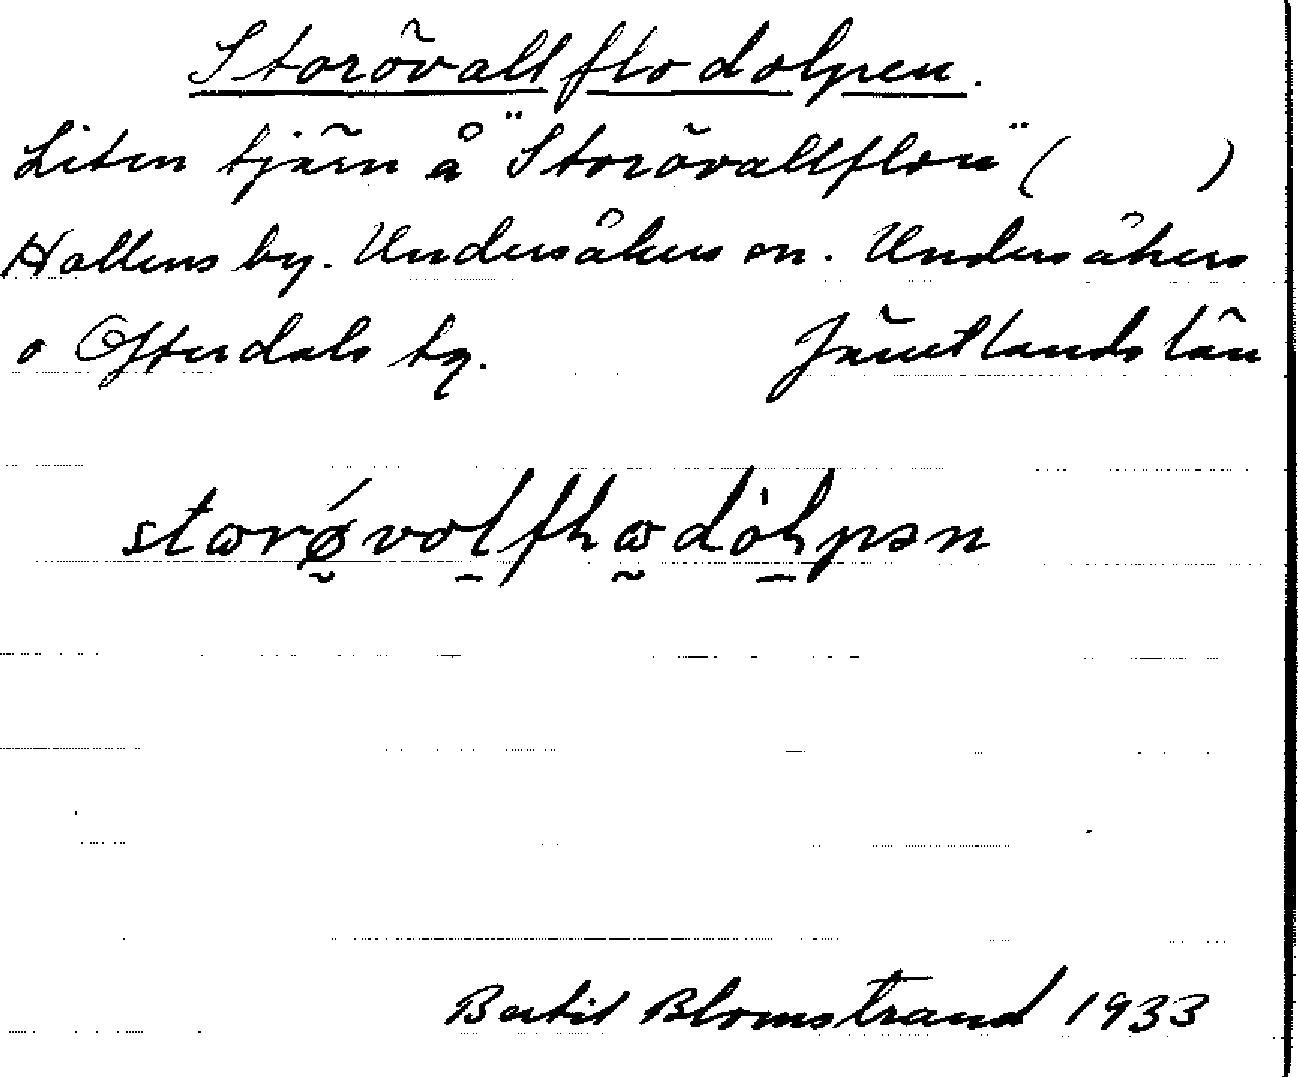 Storövallflodolpen.
Liten tjärn å "Storövallflon" ( )
Hallens by. Undersåkers sn. Undersåkers
o Offerdals tg. Jämtlands län
stωrǿ̰vo̱lfłω̰dò̱łpən
Bertil Blomstrand 1933